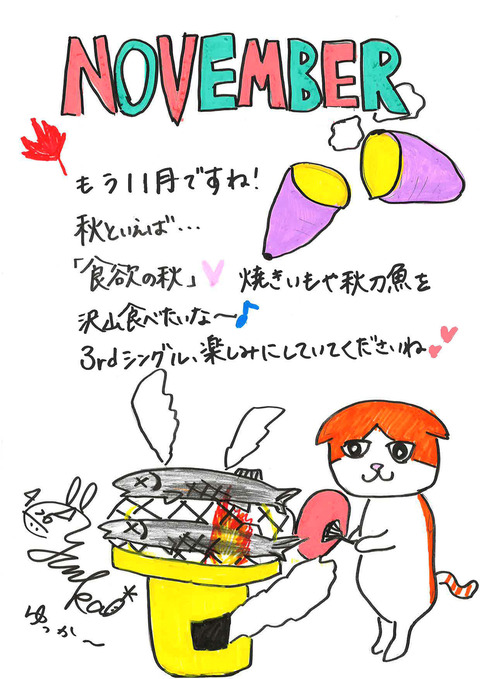 NOVEMBER
もう11月ですね!
秋といえば…
「食欲の秋」 焼きいもや秋刀魚を
沢山食べたいな〜
3rdシングル、楽しみにしていてくださいね
Yukka
ゆっか〜